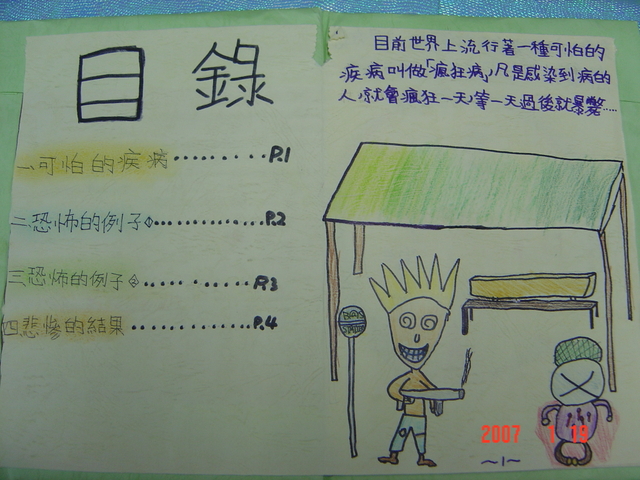 目錄
一可怕的疾病..........P.1
二恐怖的例子①..............P.2
三恐怖的例子②..............P.3
四悲慘的結果..............P.4
目前世界上流行著一種可怕的
疾病叫做「瘋狂病」凡是感染到病的
人,就會瘋狂一天,等一天過後就暴斃....
~1~
2007 1 19